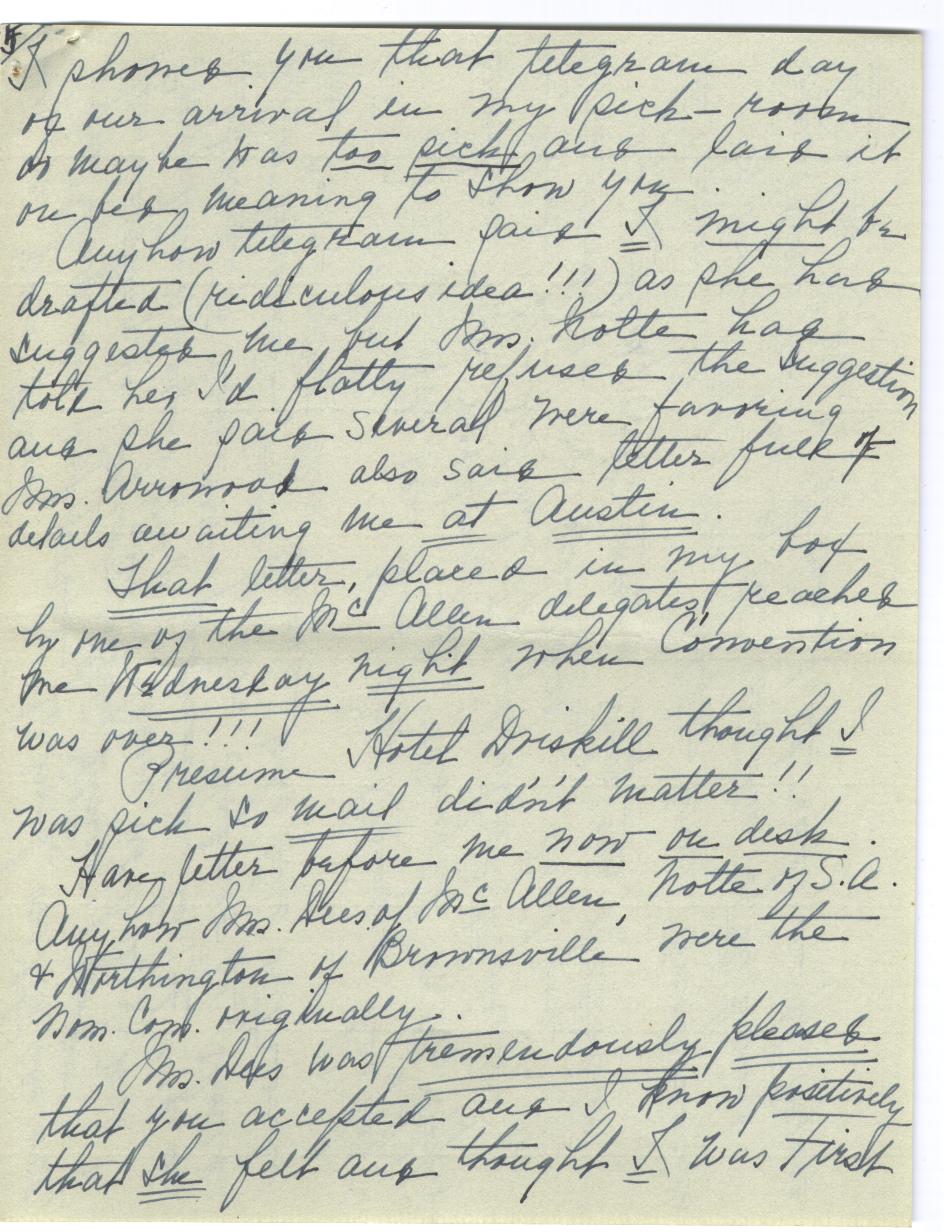 5/
I showed you that telegram day
of our arrival in my sick-room
or maybe was too sick and laid it
on bed meaning to show you.
Anyhow telegram said I might be
drafted (ridiculous idea!!!) as she had
suggested me but Mrs. Notte had
told her I'd flatly refused the suggestion
and she said several were favoring
Mrs. Arrowood also said letter full of
details awaiting me at Austin.
That letter, placed in my box
by one of the McAllen delegates, reached
me Wednesday night when Convention
was over!!!
Presume Hotel Driskill thought I
was sick so mail didn't matter!!
Have letter before me now on desk.
Anyhow Mrs. Dees of McAllen, Notte of S.A.
& Worthington of Brownsville were the
Nom. Com. originally.
Mrs. Dees was tremendously pleased
that you accepted and I know positively
that she felt and thought I was First